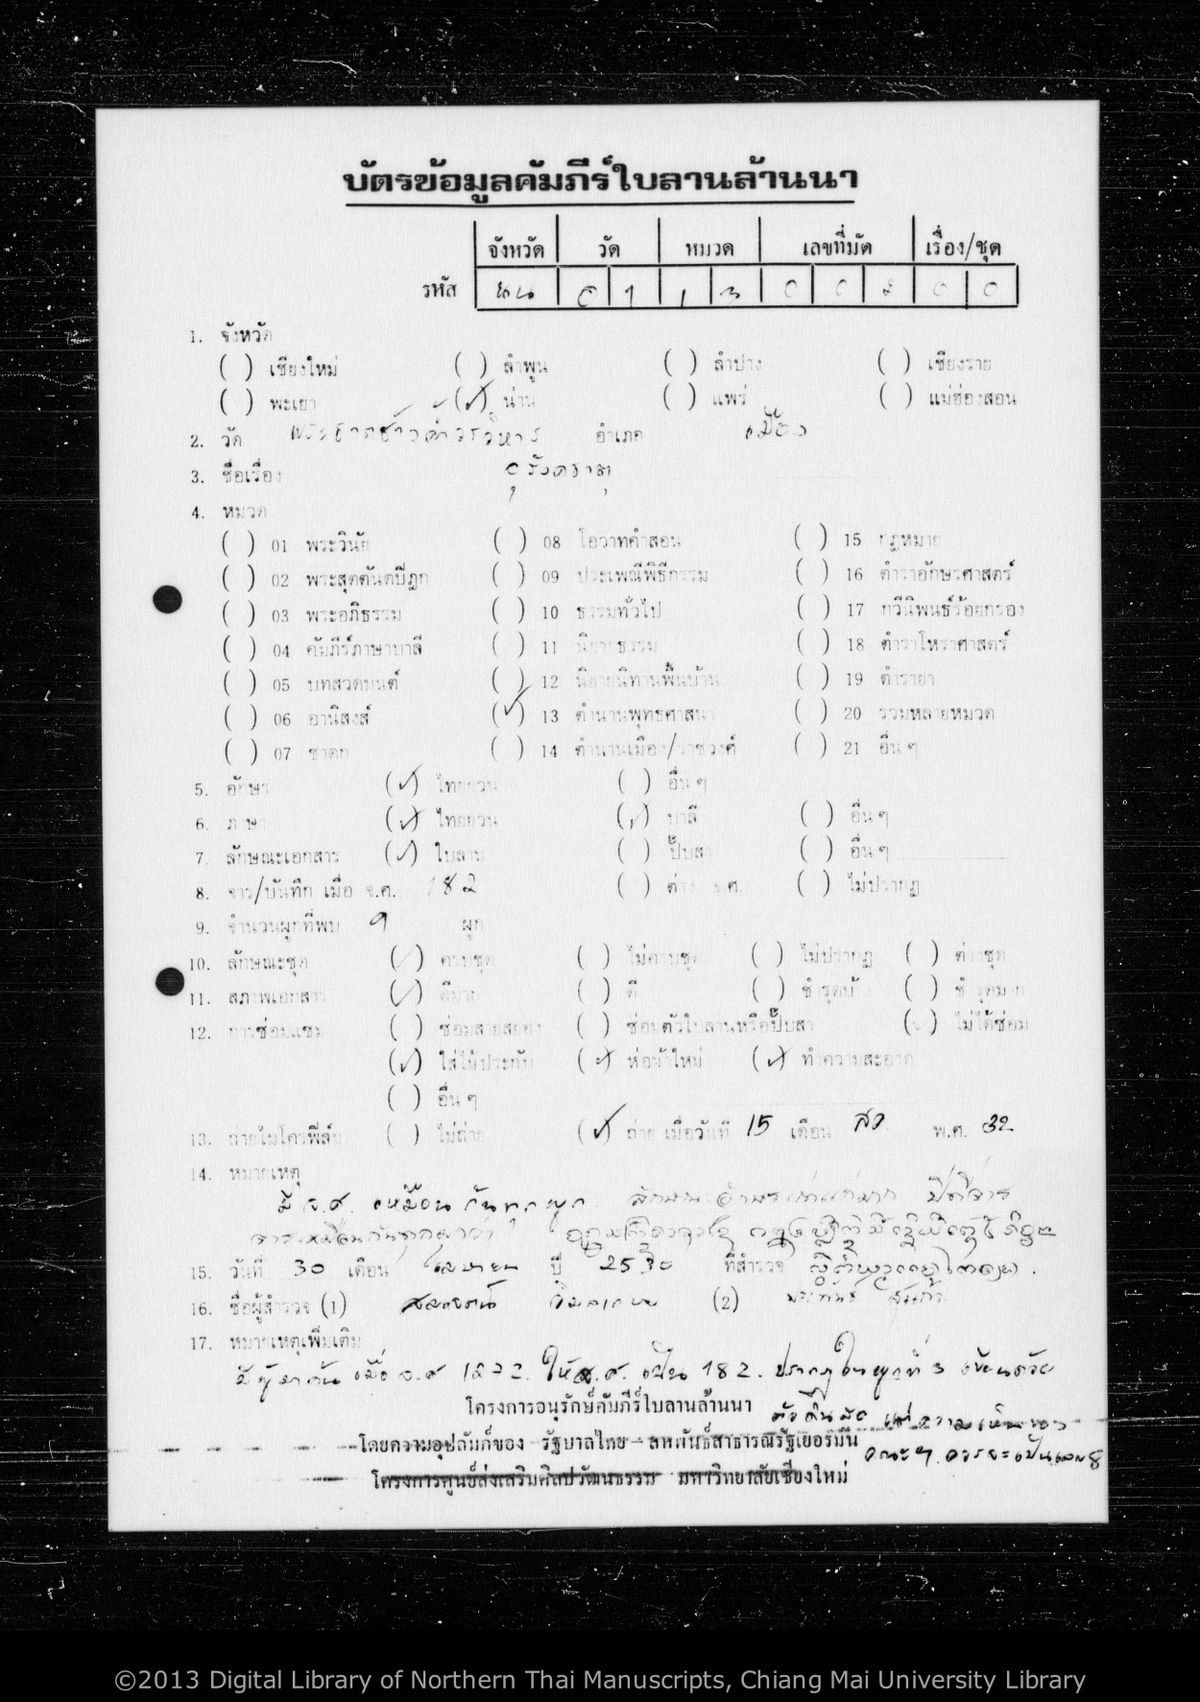 บัตรข้อมูลคัมภีร์ใบลานล้านนา
จังหวัด วัด หมวด เลขที่มัด เรื่อง/ชุด
รหัส นน 0 1 1 3 0 0 2 0 0
1. จังหวัด
( ) เชียงใหม่ ( ) ลำพูน ( ) ลำปาง ( ) เชียงราย
( ) พะเยา (✓) น่าน ( ) แพร่ ( ) แม่ฮ่องสอน
2. วัด พระธาตุช้างค้ำวรวิหาร อำเภอ เมือง
3. ชื่อเรื่อง อุรังคธาตุ
4. หมวด
( ) 01 พระวินัย ( ) 08 โอวาทคำสอน ( ) 15 กฎหมาย
( ) 02 พระสุตตันตปิฎก ( ) 09 ประเพณีพิธีกรรม ( ) 16 ตำราอักษรศาสตร์
( ) 03 พระอภิธรรม ( ) 10 ธรรมทั่วไป ( ) 17 กวีนิพนธ์ร้อยกรอง
( ) 04 คัมภีร์ภาษาบาลี ( ) 11 นิยายธรรม ( ) 18 ตำราโหราศาสตร์
( ) 05 บทสวดมนต์ ( ) 12 นิยายนิทานพื้นบ้าน ( ) 19 ตำรายา
( ) 06 อานิสงส์ (✓) 13 ตำนานพุทธศาสนา ( ) 20 รวมหลายหมวด
( ) 07 ชาดก ( ) 14 ตำนานเมือง/ราชวงศ์ ( ) 21 อื่น ๆ
5. อักษร (✓) ไทยยวน ( ) อื่น ๆ
6. ภาษา (✓) ไทยยวน (✓) บาลี ( ) อื่น ๆ
7. ลักษณะเอกสาร (✓) ใบลาน ( ) ปั๊บสา ( ) อื่น ๆ
8. จาร/บันทึก เมื่อ จ.ศ. 182 ( ) ต่าง จ.ศ. ( ) ไม่ปรากฏ
9. จำนวนผูกที่พบ 9 ผูก
10. ลักษณะชุด (✓) ครบชุด ( ) ไม่ครบชุด ( ) ไม่ปรากฏ ( ) ต่างชุด
11. สภาพเอกสาร (✓) ดีมาก ( ) ดี ( ) ชำรุดบ้าง ( ) ชำรุดมาก
12. การซ่อมแซม ( ) ซ่อมสายสยอง ( ) ซ่อมตัวใบลานหรือปั๊บสา (✓) ไม่ได้ซ่อม
(✓) ใส่ไม้ประกับ (✓) ห่อผ้าใหม่ (✓) ทำความสะอาด
( ) อื่น ๆ
13. ถ่ายไมโครฟิล์ม ( ) ไม่ถ่าย (✓) ถ่าย เมื่อวันที่ 15 เดือน สค. พ.ศ. 32
14. หมายเหตุ
มี จ.ศ. เหมือนกันทุกผูก
15. วันที่ 30 เดือน เมษายน ปี 2530 ที่สำรวจ
16. ชื่อผู้สำรวจ (1) (2)
17. หมายเหตุเพิ่มเติม
เมื่อ จ.ศ ให้ จ.ศ. เป็น 182. ปรากฏในผูกที่ 3 เขียนด้วย
โครงการอนุรักษ์คัมภีร์ใบลานล้านนา แต่ความเห็นของ
โดยความอุปถัมภ์ของ รัฐบาลไทย - สหพันธ์สาธารณรัฐเยอรมัน คณะฯ ควรจะเป็นเลข 8
โครงการศูนย์ส่งเสริมศิลปวัฒนธรรม มหาวิทยาลัยเชียงใหม่
©2013 Digital Library of Northern Thai Manuscripts, Chiang Mai University Library